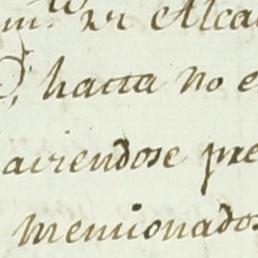 m.to rr Alca
hacta no e
aciendose pre
mencionados